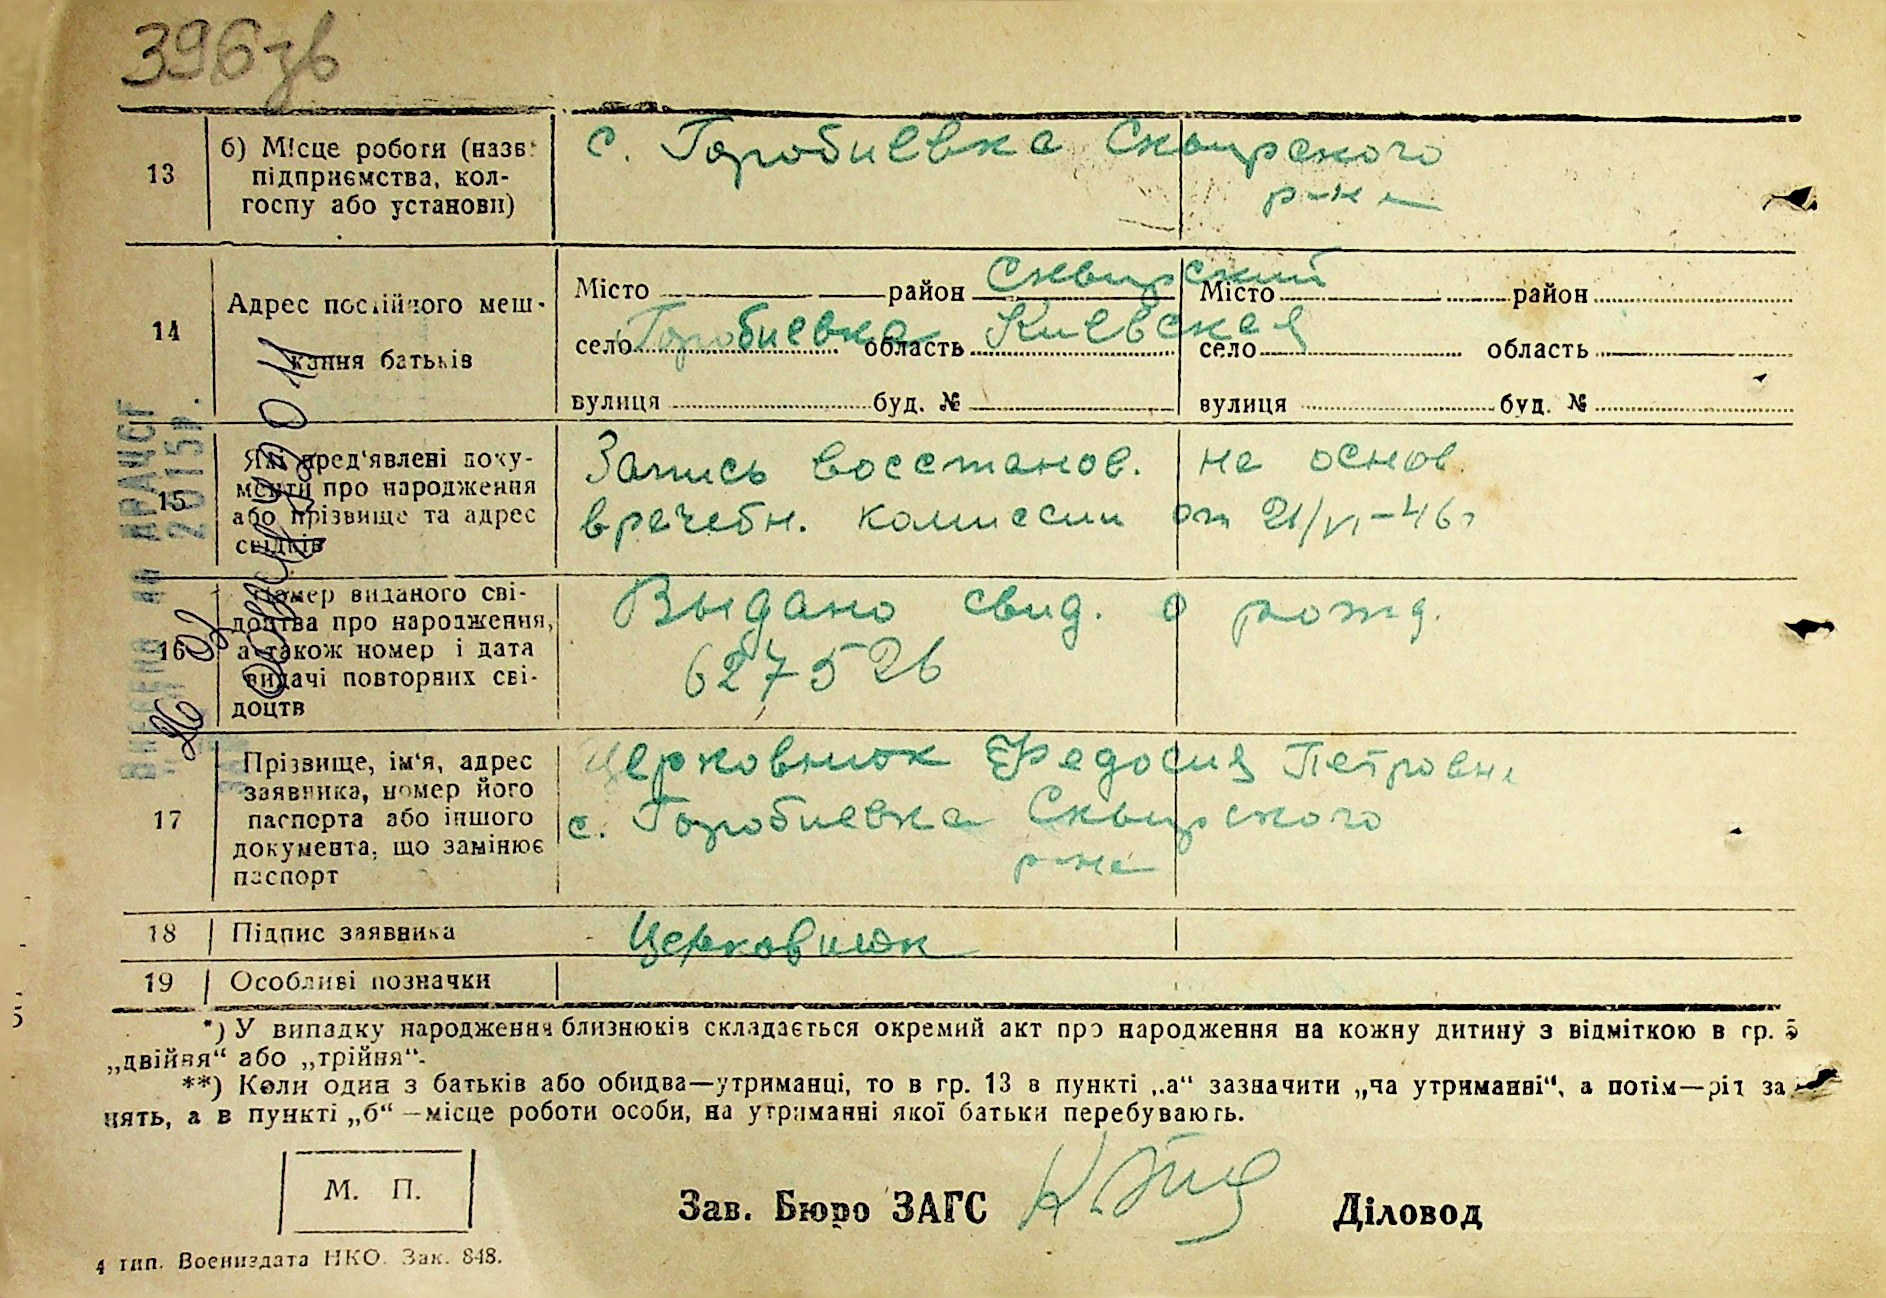 396зв
13
б) Місце роботи (назв:
підприємства, кол-
госпу або установи)
с. Горобиевка Сквирского
р-на
14
Адрес постійного меш-
кання батьків
Місто район Сквирский Місто район
село Горобиевка область Киевская село область
вулиця буд. № вулиця буд. №
15
Які пред'явлені доку-
менти про народження
або прізвище та адрес
свідків
Запись восстанов. на основ.
врачебн. комиссии от 21/VI-46г
16
Номер виданого сві-
доцтва про народження,
а також номер і дата
видачі повторних сві-
доцтв
Выдано свид. о рожд.
627526
17
Прізвище, ім'я, адрес
заявника, номер його
паспорта або іншого
документа, що замінює
паспорт
Церковнюк Федосия Петровна
с. Горобиевка Сквирского
р-на
18 Підпис заявника Церковнюк
19 Особливі позначки
*) У випадку народження близнюків складається окремий акт про народження на кожну дитину з відміткою в гр. 5
„двійня“ або „трійня“.
**) Коли один з батьків або обидва—утриманці, то в гр. 13 в пункті „а“ зазначити „на утриманні“, а потім—ріт за
нять, а в пункті „б“—місце роботи особи, на утриманні якої батьки перебувають.
М. П.
Зав. Бюро ЗАГС Діловод
4 тип. Воениздата НКО. Зак. 848.
ДРАЦСГ
2015г.